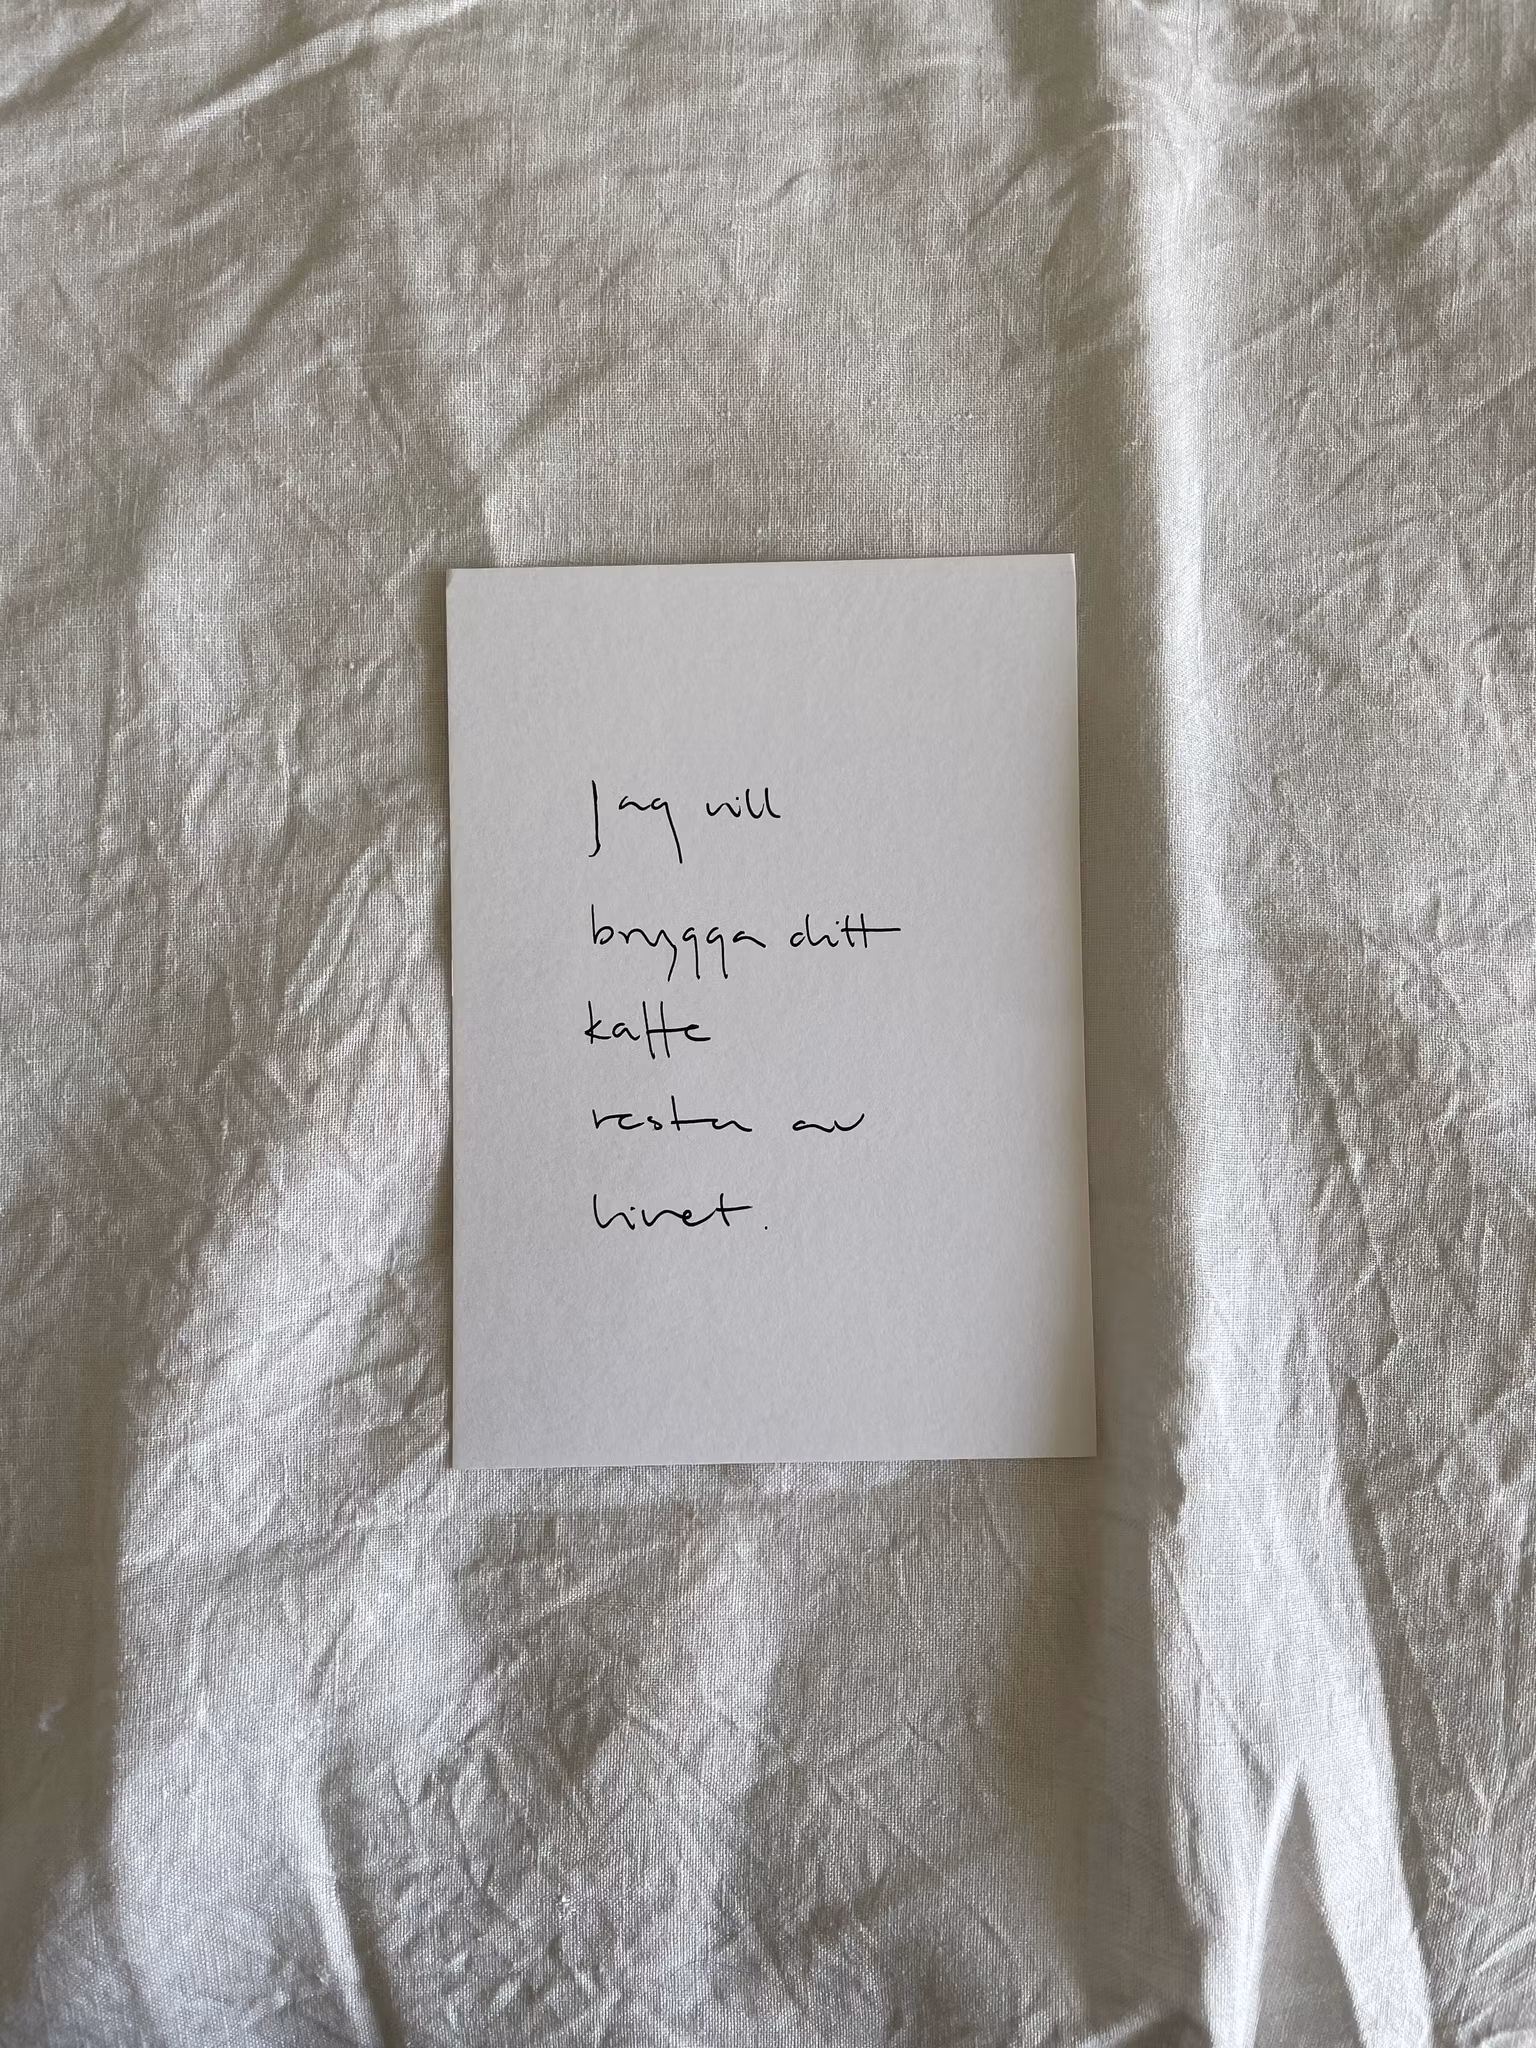 Jag vill
brygga ditt
kaffe
resten av
livet.